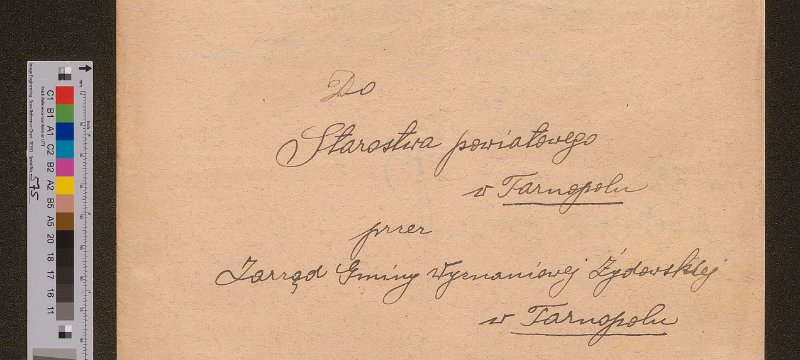 Do
Starostwa powiatowego
w Tarnopolu
przez
Zarząd Gminy Wyznaniowej Żydowskiej
w Tarnopolu
C1 B1 A1 C2 B2 A2 B5 A5 20 18 17 16 11
575